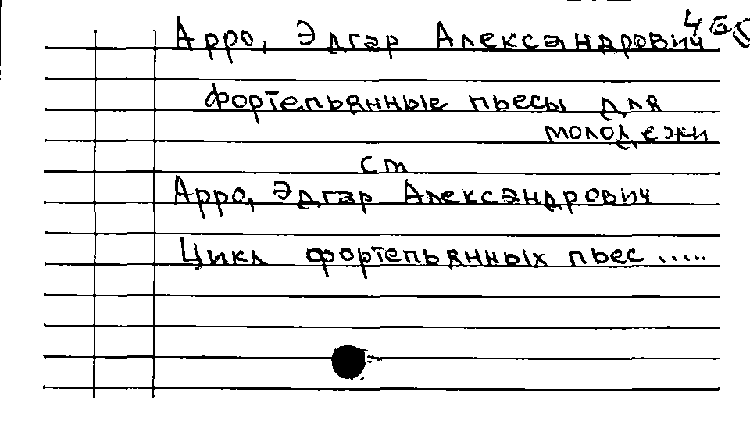 Арро, Эдгар Александрович
фортепьянные пьесы для
молодежи
см
Арро, Эдгар Александрович
Цикл фортепьянных пьес .....